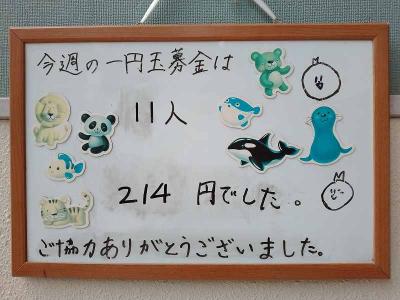 今週の一円玉募金は
11人
214 円でした。
ご協力ありがとうございました。